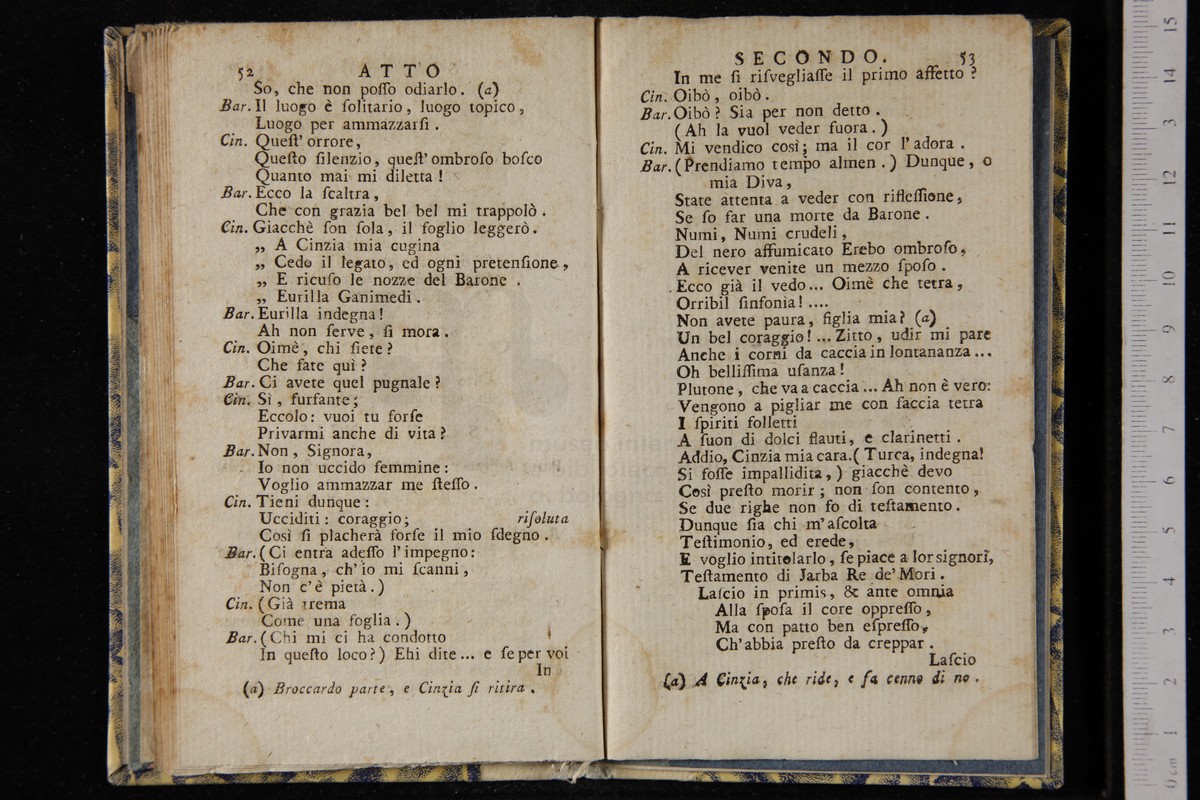 52 ATTO
So, che non poſſo odiarlo. (a)
Bar. Il luogo è ſolitario, luogo topico,
Luogo per ammazzarſi.
Cin. Queſt' orrore,
Queſto ſilenzio, queſt' ombroſo boſco
Quanto mai mi diletta!
Bar. Ecco la ſcaltra,
Che con grazia bel bel mi trappolò.
Cin. Giacchè ſon ſola, il foglio leggerò.
„ A Cinzia mia cugina
„ Cedo il legato, ed ogni pretenſione,
„ E ricuſo le nozze del Barone.
„ Eurilla Ganimedi.
Bar. Eurilla indegna!
Ah non ſerve, ſi mora.
Cin. Oimè, chi ſiete?
Che fate quì?
Bar. Ci avete quel pugnale?
Cin. Sì, furfante;
Eccolo: vuoi tu forſe
Privarmi anche di vita?
Bar. Non, Signora,
Io non uccido femmine:
Voglio ammazzar me ſteſſo.
Cin. Tieni dunque:
Ucciditi: coraggio; riſoluta
Così ſi placherà forſe il mio ſdegno.
Bar. (Ci entra adeſſo l'impegno:
Biſogna, ch'io mi ſcanni,
Non c'è pietà.)
Cin. (Già trema
Come una foglia.)
Bar. (Chi mi ci ha condotto
In queſto loco?) Ehi dite... e ſe per voi
In
(a) Broccardo parte, e Cinzia ſi ritira.
SECONDO. 53
In me ſi riſvegliaſſe il primo affetto?
Cin. Oibò, oibò.
Bar. Oibò? Sia per non detto.
(Ah la vuol veder fuora.)
Cin. Mi vendico così; ma il cor l'adora.
Bar. (Prendiamo tempo almen.) Dunque, o
mia Diva,
State attenta a veder con rifleſſione,
Se ſo far una morte da Barone.
Numi, Numi crudeli,
Del nero affumicato Erebo ombroſo,
A ricever venite un mezzo ſpoſo.
Ecco già il vedo... Oimè che tetra,
Orribil ſinfonia!....
Non avete paura, figlia mia? (a)
Un bel coraggio!... Zitto, udir mi pare
Anche i corni da caccia in lontananza...
Oh belliſſima uſanza!
Plutone, che va a caccia... Ah non è vero:
Vengono a pigliar me con faccia tetra
I ſpiriti folletti
A ſuon di dolci flauti, e clarinetti.
Addio, Cinzia mia cara. (Turca, indegna!
Si foſſe impallidita,) giacchè devo
Così preſto morir; non ſon contento,
Se due righe non fo di teſtamento.
Dunque ſia chi m'aſcolta
Teſtimonio, ed erede,
E voglio intitolarlo, ſe piace a lor signori,
Teſtamento di Jarba Re de' Mori.
Laſcio in primis, & ante omnia
Alla ſpoſa il core oppreſſo,
Ma con patto ben eſpreſſo,
Ch'abbia preſto da creppar.
Laſcio
(a) A Cinzia, che ride, e fa cenno di no.
15
14
13
12
11
10
9
8
7
6
5
4
3
2
1
0 cm